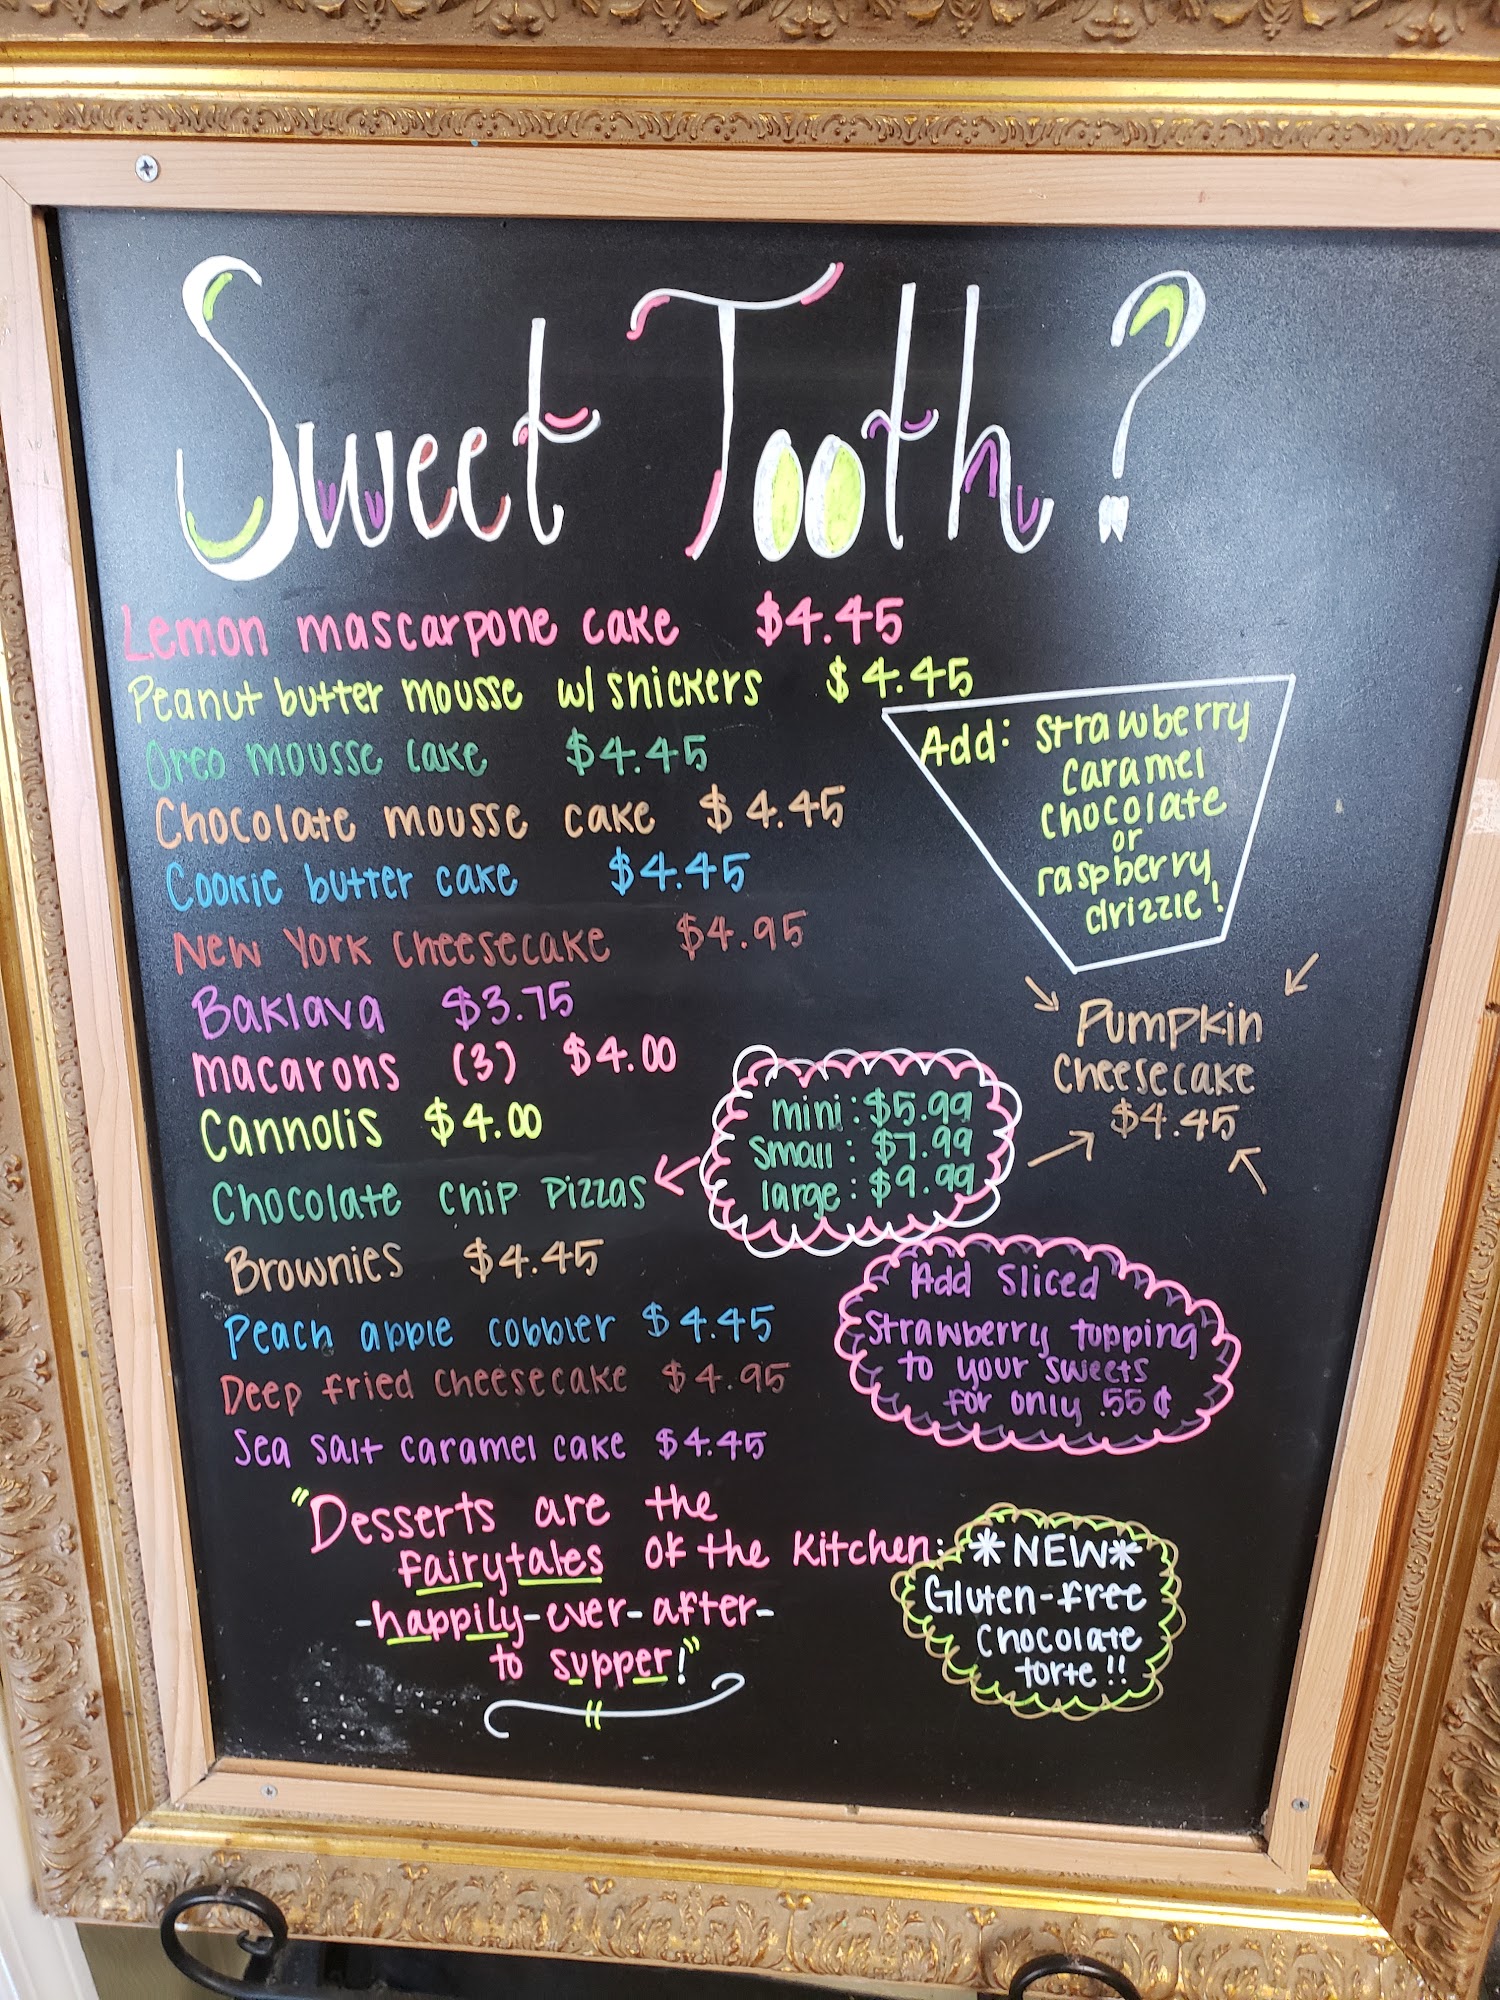 Sweet Tooth?
Lemon mascarpone cake $4.45
Peanut butter mousse w/ snickers $4.45
Oreo mousse cake $4.45
Chocolate mousse cake $4.45
Cookie butter cake $4.45
New York Cheesecake $4.95
Baklava $3.75
macarons (3) $4.00
Cannolis $4.00
Chocolate chip pizzas
mini: $5.99
small: $7.99
large: $9.99
Brownies $4.45
Peach apple cobbler $4.45
Deep fried cheesecake $4.95
Sea salt caramel cake $4.45
Add: strawberry
caramel
chocolate
or
raspberry
drizzle!
Pumpkin
Cheesecake
$4.45
Add sliced
strawberry topping
to your sweets
for only .55¢
"Desserts are the
fairytales of the kitchen:
-happily-ever-after-
to supper!"
*NEW*
Gluten-free
Chocolate
torte!!